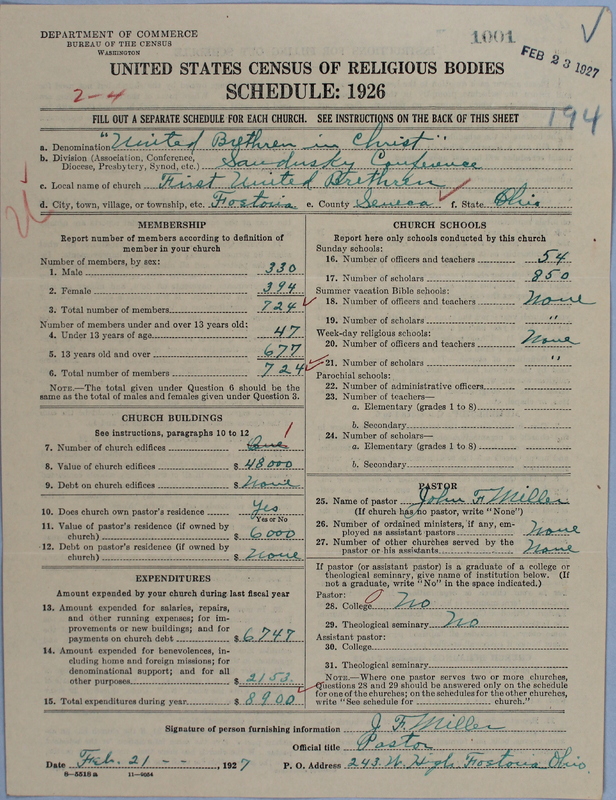 DEPARTMENT OF COMMERCE
BUREAU OF THE CENSUS
WASHINGTON
1001
FEB 23 1927
UNITED STATES CENSUS OF RELIGIOUS BODIES
2-4
SCHEDULE: 1926
FILL OUT A SEPARATE SCHEDULE FOR EACH CHURCH. SEE INSTRUCTIONS ON THE BACK OF THIS SHEET
194
a. Denomination "United Brethren in Christ"
b. Division (Association, Conference, Diocese, Presbytery, Synod, etc.) Sandusky Conference
c. Local name of church First United Brethren
d. City, town, village, or township, etc. Fostoria e. County Seneca f. State Ohio
MEMBERSHIP
Report number of members according to definition of
member in your church
Number of members, by sex:
1. Male 330
2. Female 394
3. Total number of members 724
Number of members under and over 13 years old:
4. Under 13 years of age 47
5. 13 years old and over 677
6. Total number of members 724
NOTE.—The total given under Question 6 should be
same as the total of males and females given under Question 3.
CHURCH BUILDINGS
See instructions, paragraphs 10 to 12
7. Number of church edifices One 1
8. Value of church edifices $ 48000
9. Debt on church edifices $ None
10. Does church own pastor's residence Yes
Yes or No
11. Value of pastor's residence (if owned by
church) $ 6000
12. Debt on pastor's residence (if owned by
church) $ None
EXPENDITURES
Amount expended by your church during last fiscal year
13. Amount expended for salaries, repairs,
and other running expenses; for im-
provements or new buildings; and for
payments on church debt $ 6747
14. Amount expended for benevolences, in-
cluding home and foreign missions; for
denominational support; and for all
other purposes $ 2153
15. Total expenditures during year $ 8900
CHURCH SCHOOLS
Report here only schools conducted by this church
Sunday schools:
16. Number of officers and teachers 54
17. Number of scholars 850
Summer vacation Bible schools:
18. Number of officers and teachers None
19. Number of scholars "
Week-day religious schools:
20. Number of officers and teachers None
21. Number of scholars "
Parochial schools:
22. Number of administrative officers
23. Number of teachers—
a. Elementary (grades 1 to 8)
b. Secondary
24. Number of scholars—
a. Elementary (grades 1 to 8)
b. Secondary
PASTOR
25. Name of pastor John F. Miller
(If church has no pastor, write "None")
26. Number of ordained ministers, if any, em-
ployed as assistant pastors None
27. Number of other churches served by the
pastor or his assistants None
If pastor (or assistant pastor) is a graduate of a college or
theological seminary, give name of institution below. (If
not a graduate, write "No" in the space indicated.)
Pastor:
28. College No
29. Theological seminary No
Assistant pastor:
30. College
31. Theological seminary
NOTE.—Where one pastor serves two or more churches,
Questions 28 and 29 should be answered only on the schedule
for one of the churches; on the schedules for the other churches,
write "See schedule for church."
Signature of person furnishing information J. F. Miller
Official title Pastor
Date Feb. 21 - - , 1927 P. O. Address 243. W. High Fostoria Ohio.
8-5518 a 11-9664